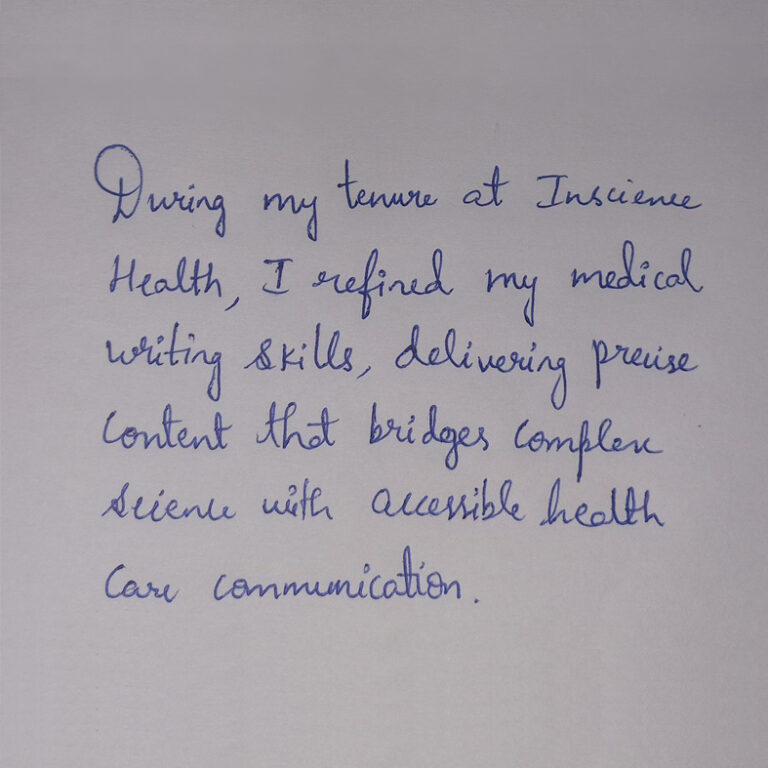 During my tenure at Inscience
Health, I refined my medical
writing skills, delivering precise
content that bridges complex
science with accessible health
care communication.